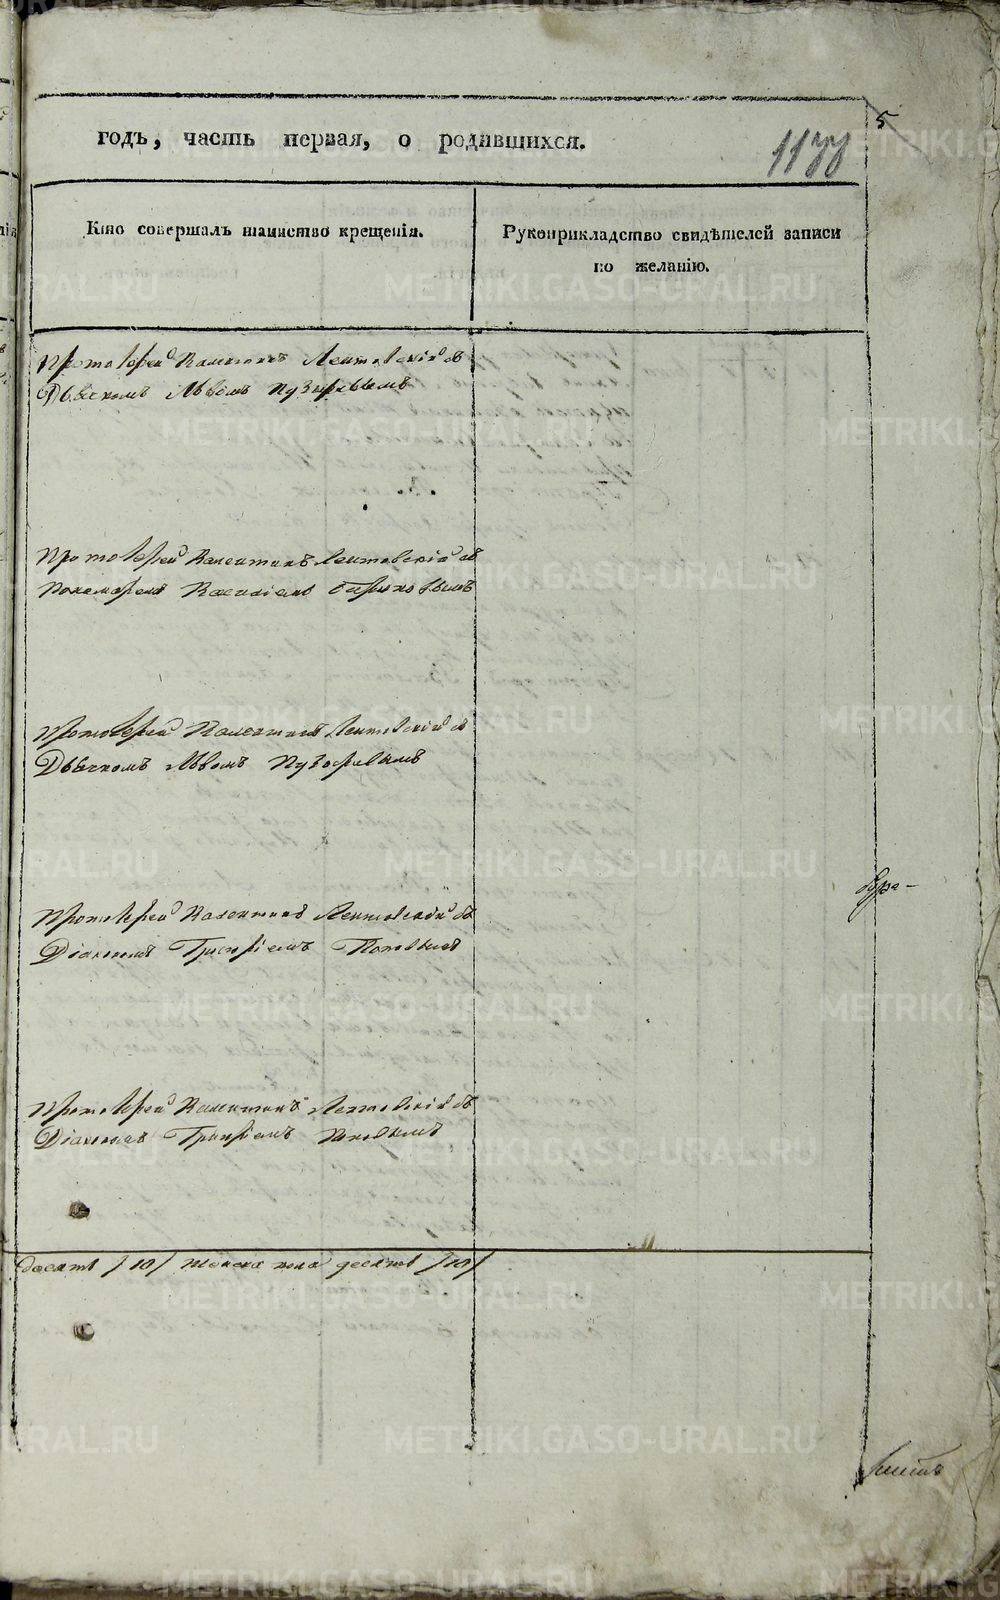 5
годъ, часть первая, о родившихся.
1177
Кто совершалъ таинство крещенія.
Рукоприкладство свидѣтелей записи
по желанію.
Протоіерей Валентинъ Лентовскій съ
Дьячкомъ Львомъ Пузыревымъ
Протоіерей Валентинъ Лентовскій съ
Пономаремъ Василіемъ
Протоіерей Валентинъ Лентовскій съ
Дьячкомъ Львомъ Пузыревымъ
Протоіерей Валентинъ Лентовскій съ
Діакономъ Григоріемъ Поповымъ
Протоіерей Валентинъ Лентовскій съ
Діакономъ Григоріемъ Поповымъ
десять /10/ Женска пола десять /10/
METRIKI.GASO-URAL.RU